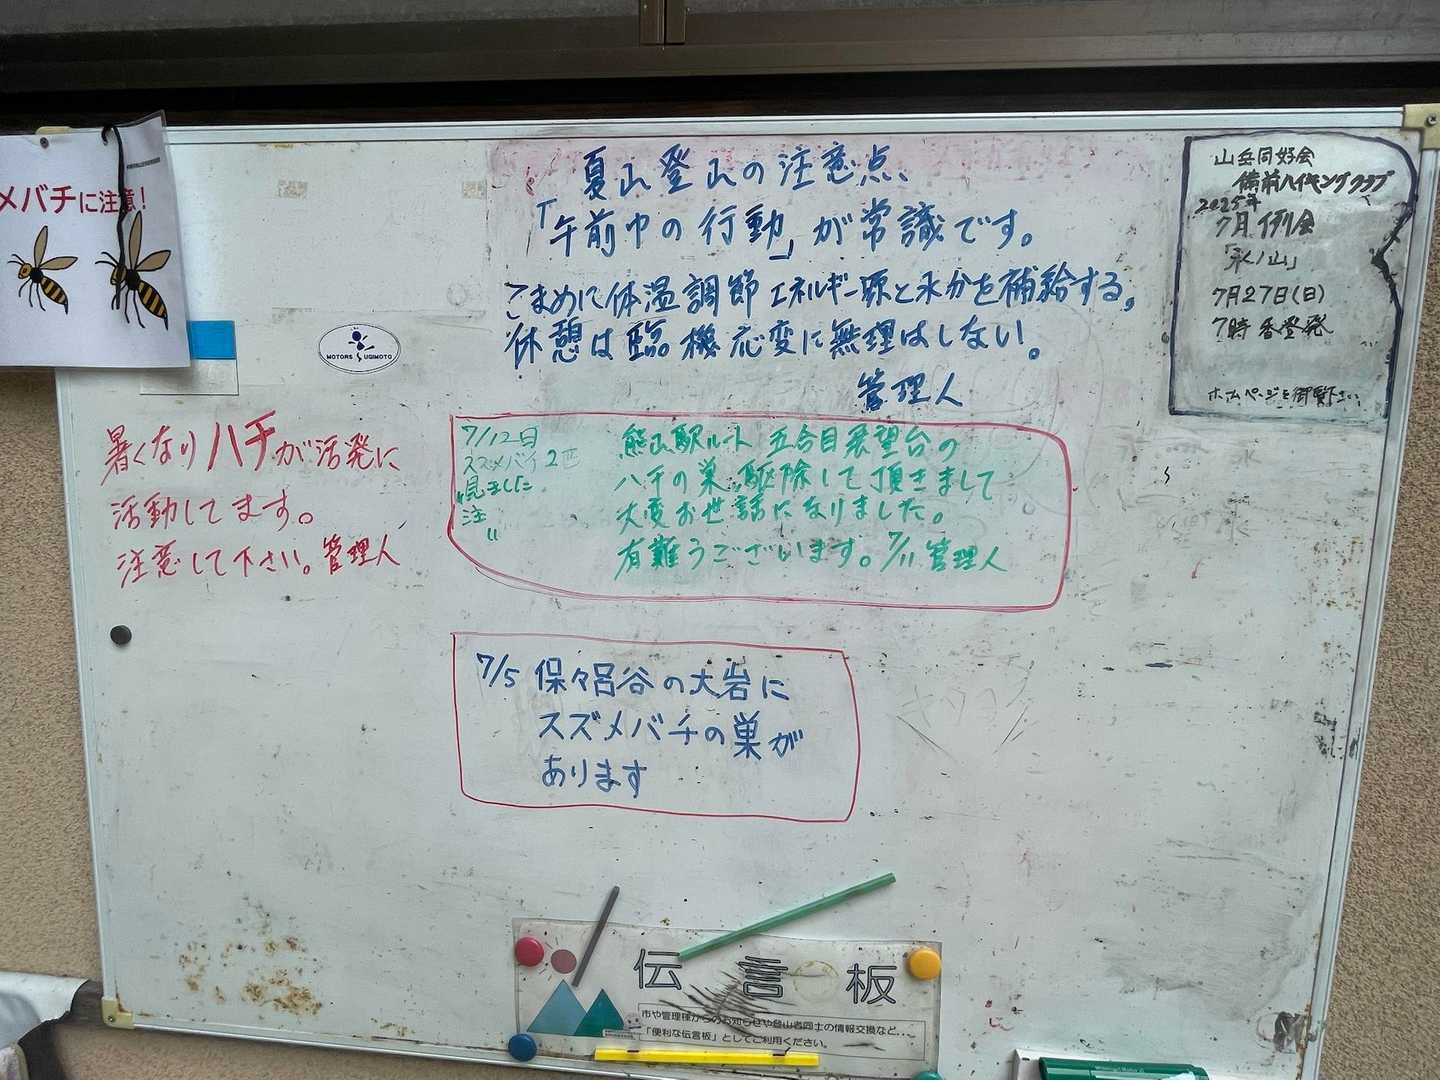 メバチに注意!
夏山登山の注意点、
「午前中の行動」が常識です。
こまめに体温調節エネルギー源と水分を補給する。
休憩は臨機応変に無理はしない。
管理人
山岳同好会
備前ハイキングクラブ
2025年
7月例会
「氷ノ山」
7月27日(日)
7時香登発
ホームページを御覧下さい
MOTORS SUGIMOTO
暑くなりハチが活発に
活動してます。
注意して下さい。管理人
7/12日
スズメバチ2匹
見ました
注〃
熊山駅ルート 五合目展望台の
ハチの巣、駆除して頂きまして
大変お世話になりました。
有難うございます。7/11 管理人
7/5 保々呂谷の大岩に
スズメバチの巣が
あります
伝言板
市や管理棟からのお知らせや登山者同士の情報交換など...
「便利な伝言板」としてご利用ください。